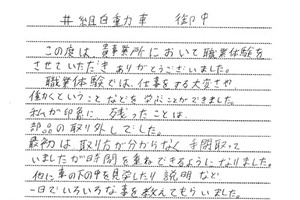 井組自動車 御中
この度は、貴事業所において職業体験を
させていただきありがとうございました。
職業体験では、仕事をする大変さや
働くということなどを学ぶことができました。
私が印象に、残ったことは、
部品の取り外しでした。
最初は、取り方が分からなく手間取って
いましたが時間を重ねできるようになりました。
他に車の下の中を見学したり説明など
一日でいろいろな事を教えてもらいました。